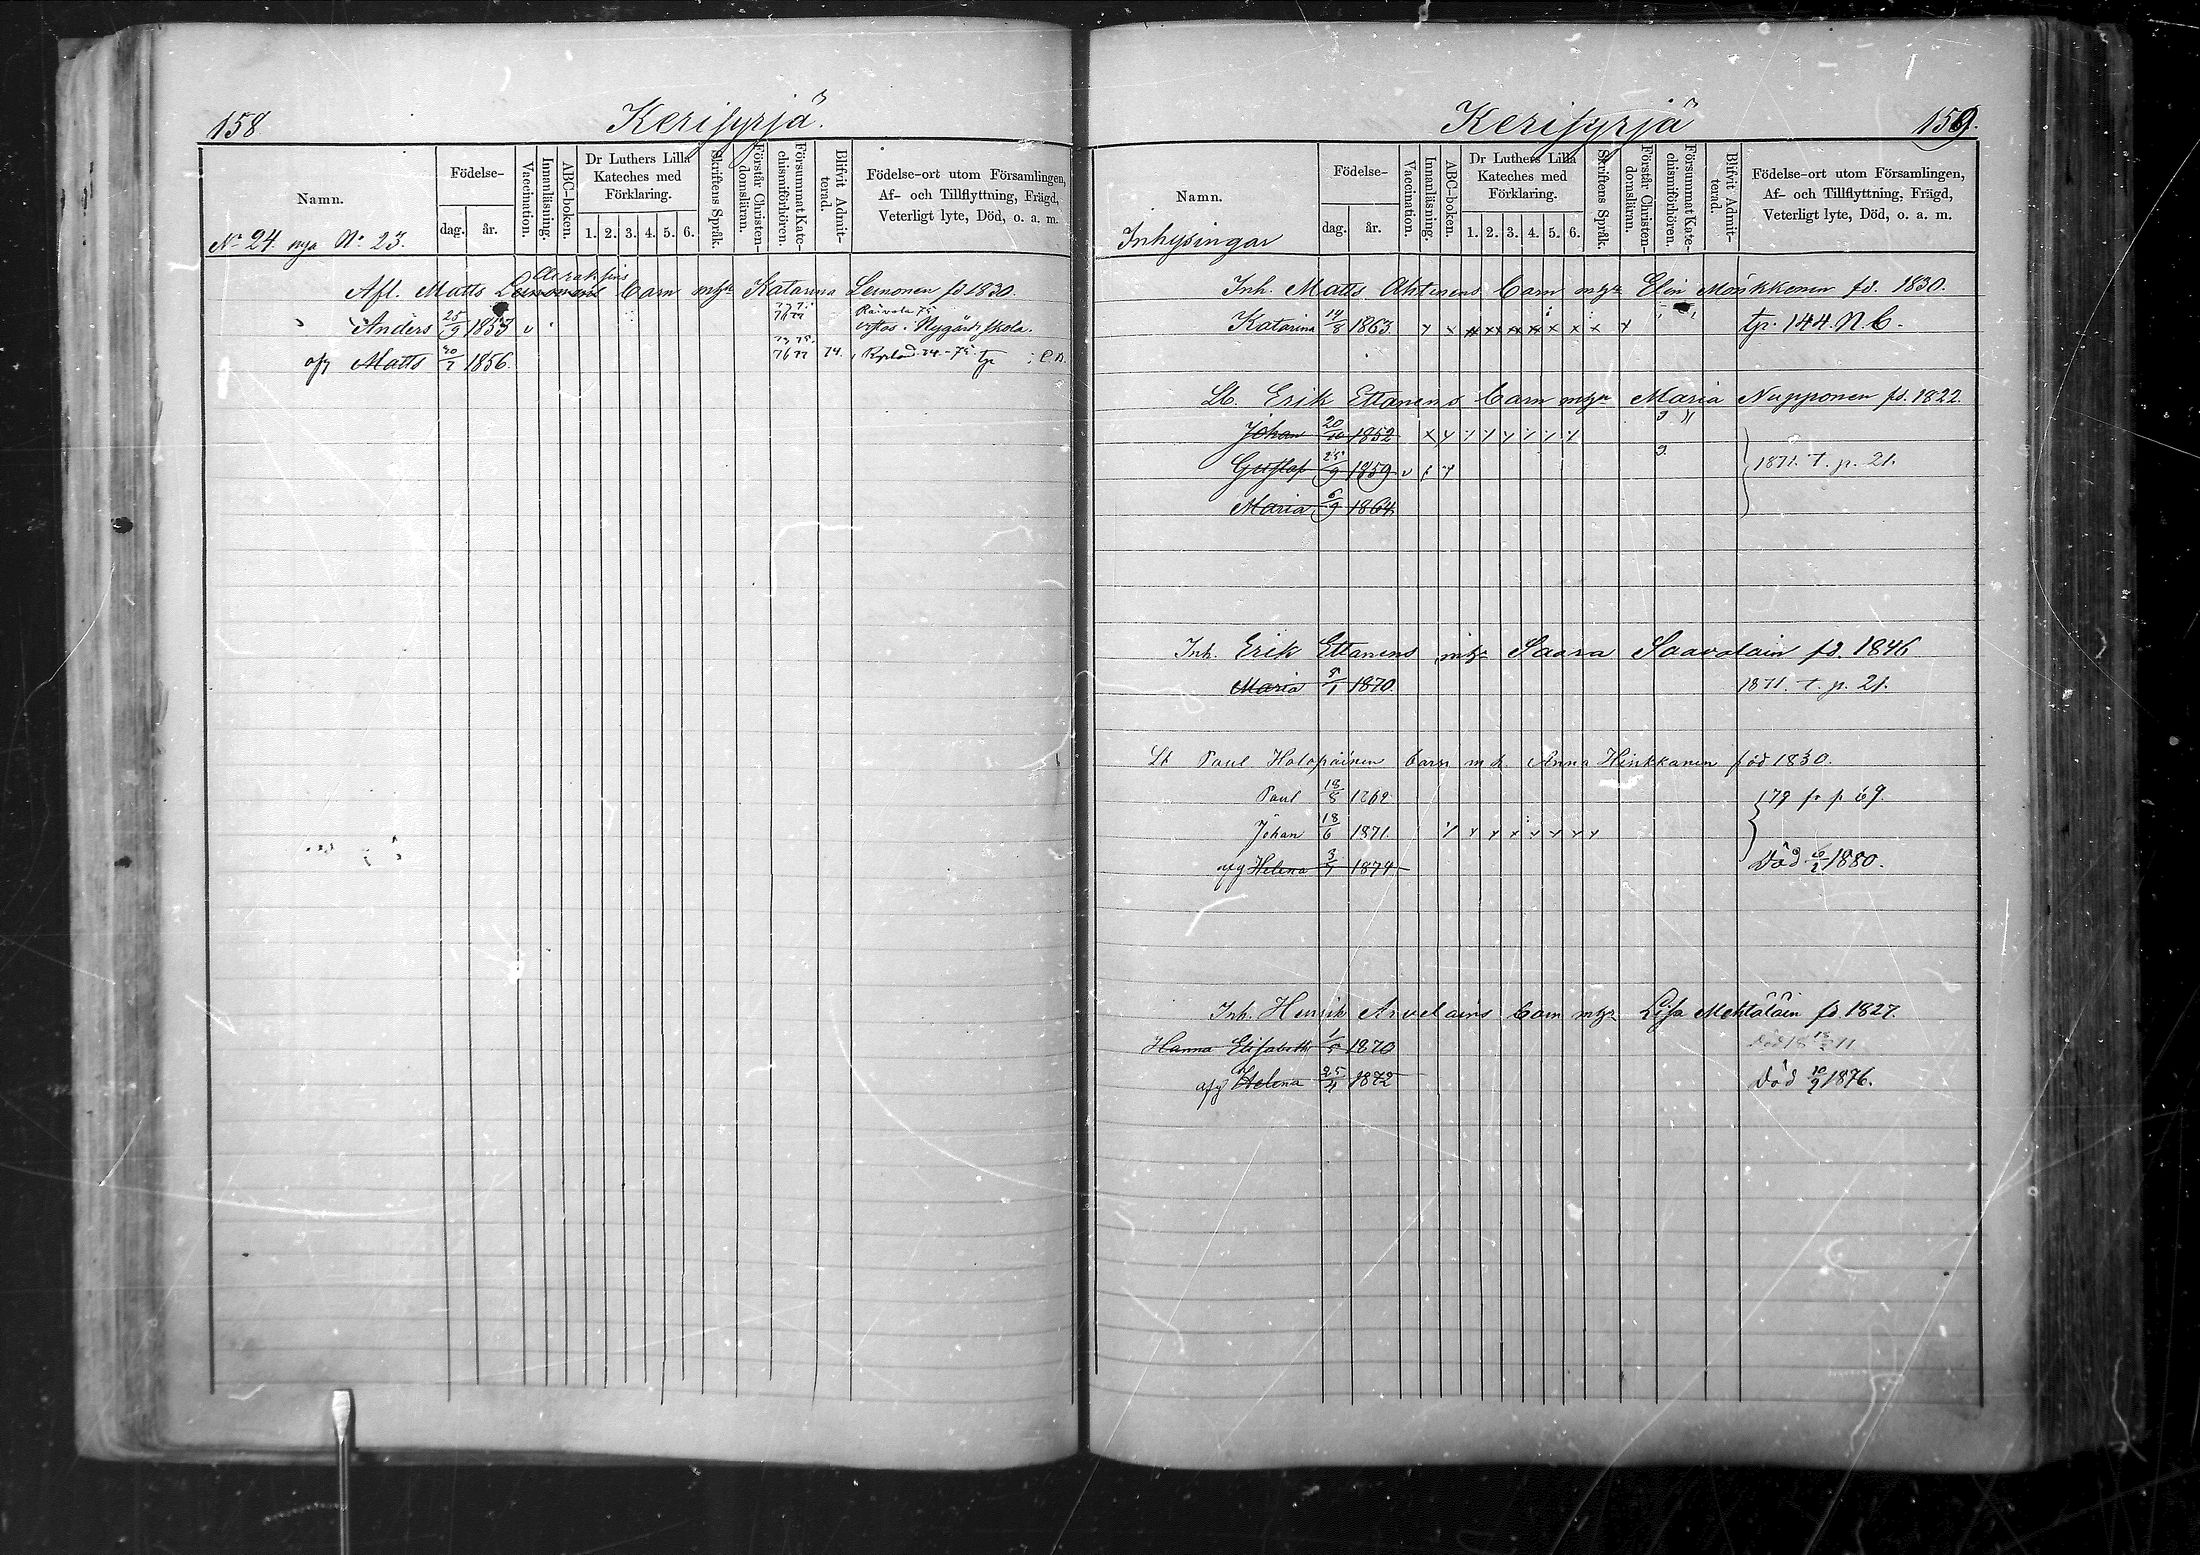 158
Kerisyrjä.
Namn.
Födelse-
dag.
år.
Vaccination.
Innanläsning.
ABC-boken.
Dr Luthers Lilla
Kateches med
Förklaring.
1. 2. 3. 4. 5. 6.
Skriftens Språk.
Förstår Christen-
domsläran.
Försummat Kate-
chismiförhören.
Blifvit Admit-
terad.
Födelse-ort utom Församlingen,
Af- och Tillflyttning, Frägd,
Veterligt lyte, Död, o. a. m.
No 24 nya No 23.
Afl. Matts Leinonens barn m hr Katarina Leinonen fd 1830.
Anders 25/9 1853 v
afg Matts 1856. 74.
Kerisyrjä
159.
Namn.
Födelse-
dag.
år.
Vaccination.
Innanläsning.
ABC-boken.
Dr Luthers Lilla
Kateches med
Förklaring.
1. 2. 3. 4. 5. 6.
Skriftens Språk.
Förstår Christen-
domsläran.
Försummat Kate-
chismiförhören.
Blifvit Admit-
terad.
Födelse-ort utom Församlingen,
Af- och Tillflyttning, Frägd,
Veterligt lyte, Död, o. a. m.
Inhysingar
Inh. Matts Ahtinens barn mhr Elin Mönkkonen fd. 1830.
Katarina 14/8 1863. tp. 144. N. C.
Lt. Erik Ettanens barn mhr Maria Nupponen fd. 1822.
Johan 20/10 1852
Gustaf 25/9 1859 v 1871. t. p. 21.
Maria 6/9 1864
Inh. Erik Ettanens mhr Saara Saavalain fd. 1846
Maria 5/1 1870. 1871. t. p. 21.
Lt Paul Holopainen barn m h. Anna Hinkkanen född 1830.
Paul 18/8 1862 79 fr p 69.
Johan 18/6 1871.
afg Helena 3/7 1874 Död 6/2 1880.
Inh. Henrik Arvelains barn mhr Lisa Mehtäläin fd. 1827.
Hanna Elisabeth 1/5 1870
afg Helena 25/4 1872 Död 10/9 1876.